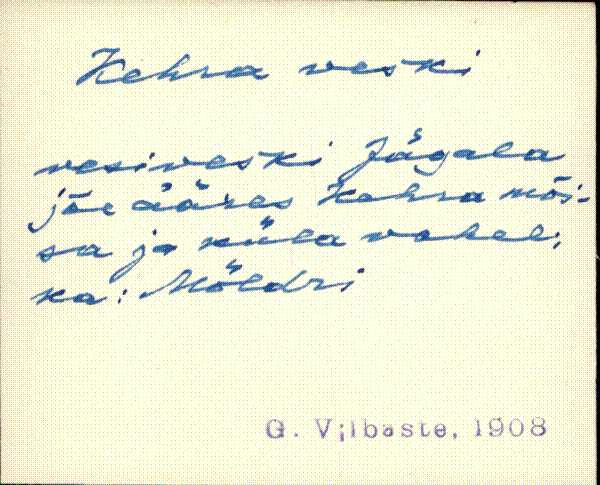 Kehra veski
vesiveski Jägala
jõe ääres Kehra mõi-
sa ja küla vahel;
ka: Möldri
G. Vilbaste, 1908